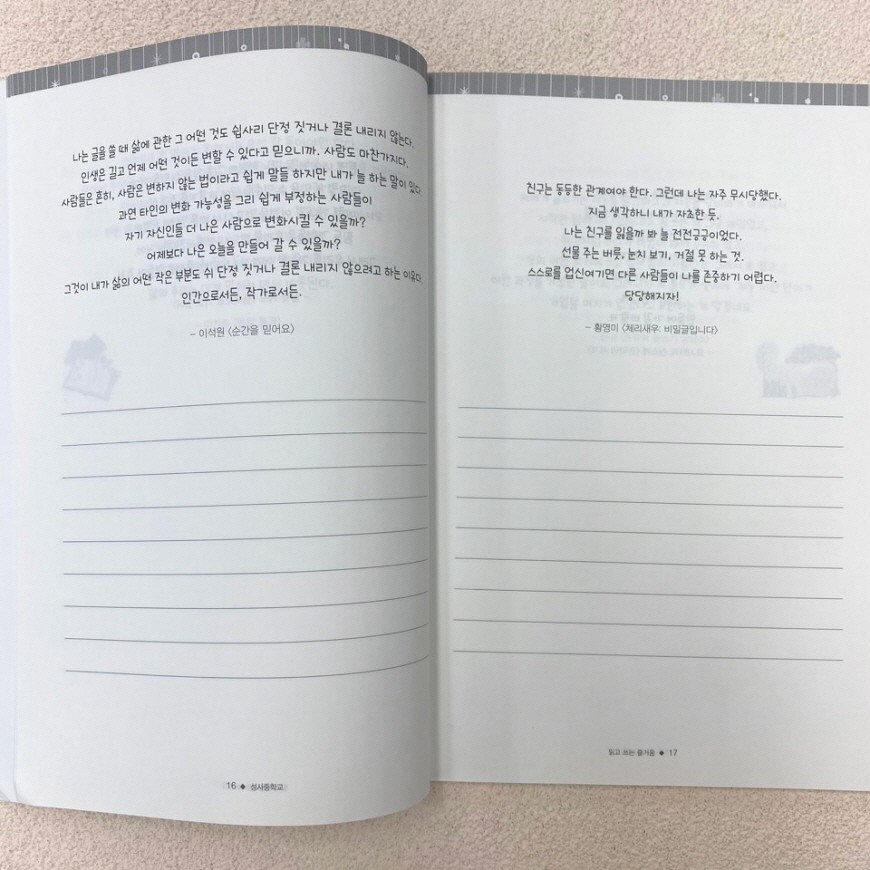 나는 글을 쓸 때 삶에 관한 그 어떤 것도 쉽사리 단정 짓거나 결론 내리지 않는다.
인생은 길고 언제 어떤 것이든 변할 수 있다고 믿으니까. 사람도 마찬가지다.
사람들은 흔히, 사람은 변하지 않는 법이라고 쉽게 말들 하지만 내가 늘 하는 말이 있다.
과연 타인의 변화 가능성을 그리 쉽게 부정하는 사람들이
자기 자신인들 더 나은 사람으로 변화시킬 수 있을까?
어제보다 나은 오늘을 만들어 갈 수 있을까?
그것이 내가 삶의 어떤 작은 부분도 쉬 단정 짓거나 결론 내리지 않으려고 하는 이유다.
인간으로서든, 작가로서든.
– 이석원 〈순간을 믿어요〉
16 ◆ 성사중학교
친구는 동등한 관계여야 한다. 그런데 나는 자주 무시당했다.
지금 생각하니 내가 자초한 듯.
나는 친구를 잃을까 봐 늘 전전긍긍이었다.
선물 주는 버릇, 눈치 보기, 거절 못 하는 것.
스스로를 업신여기면 다른 사람들이 나를 존중하기 어렵다.
당당해지자!
– 황영미 〈체리새우: 비밀글입니다〉
읽고 쓰는 즐거움 ◆ 17